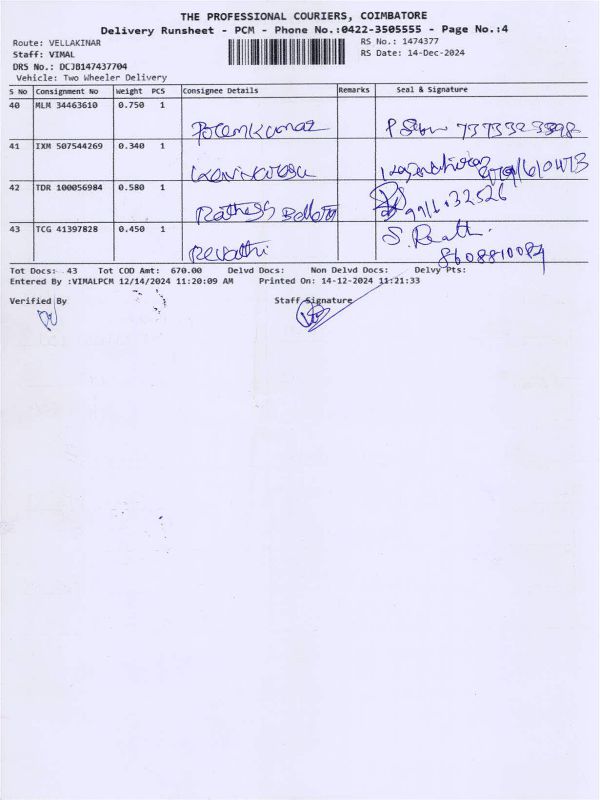 THE PROFESSIONAL COURIERS, COIMBATORE
Delivery Runsheet - PCM - Phone No.:0422-3505555 - Page No.:4
Route: VELLAKINAR RS No.: 1474377
Staff: VIMAL RS Date: 14-Dec-2024
DRS No.: DCJB147437704
Vehicle: Two Wheeler Delivery
S No Consignment No Weight PCS Consignee Details Remarks Seal & Signature
40 MLM 34463610 0.750 1
Premkumar 7373323398
41 IXM 507544269 0.340 1
42 TDR 100056984 0.580 1
Rathesh
43 TCG 41397828 0.450 1
Revathi 8608810084
Tot Docs: 43 Tot COD Amt: 670.00 Delvd Docs: Non Delvd Docs: Delvy Pts:
Entered By :VIMALPCM 12/14/2024 11:20:09 AM Printed On: 14-12-2024 11:21:33
Verified By Staff Signature